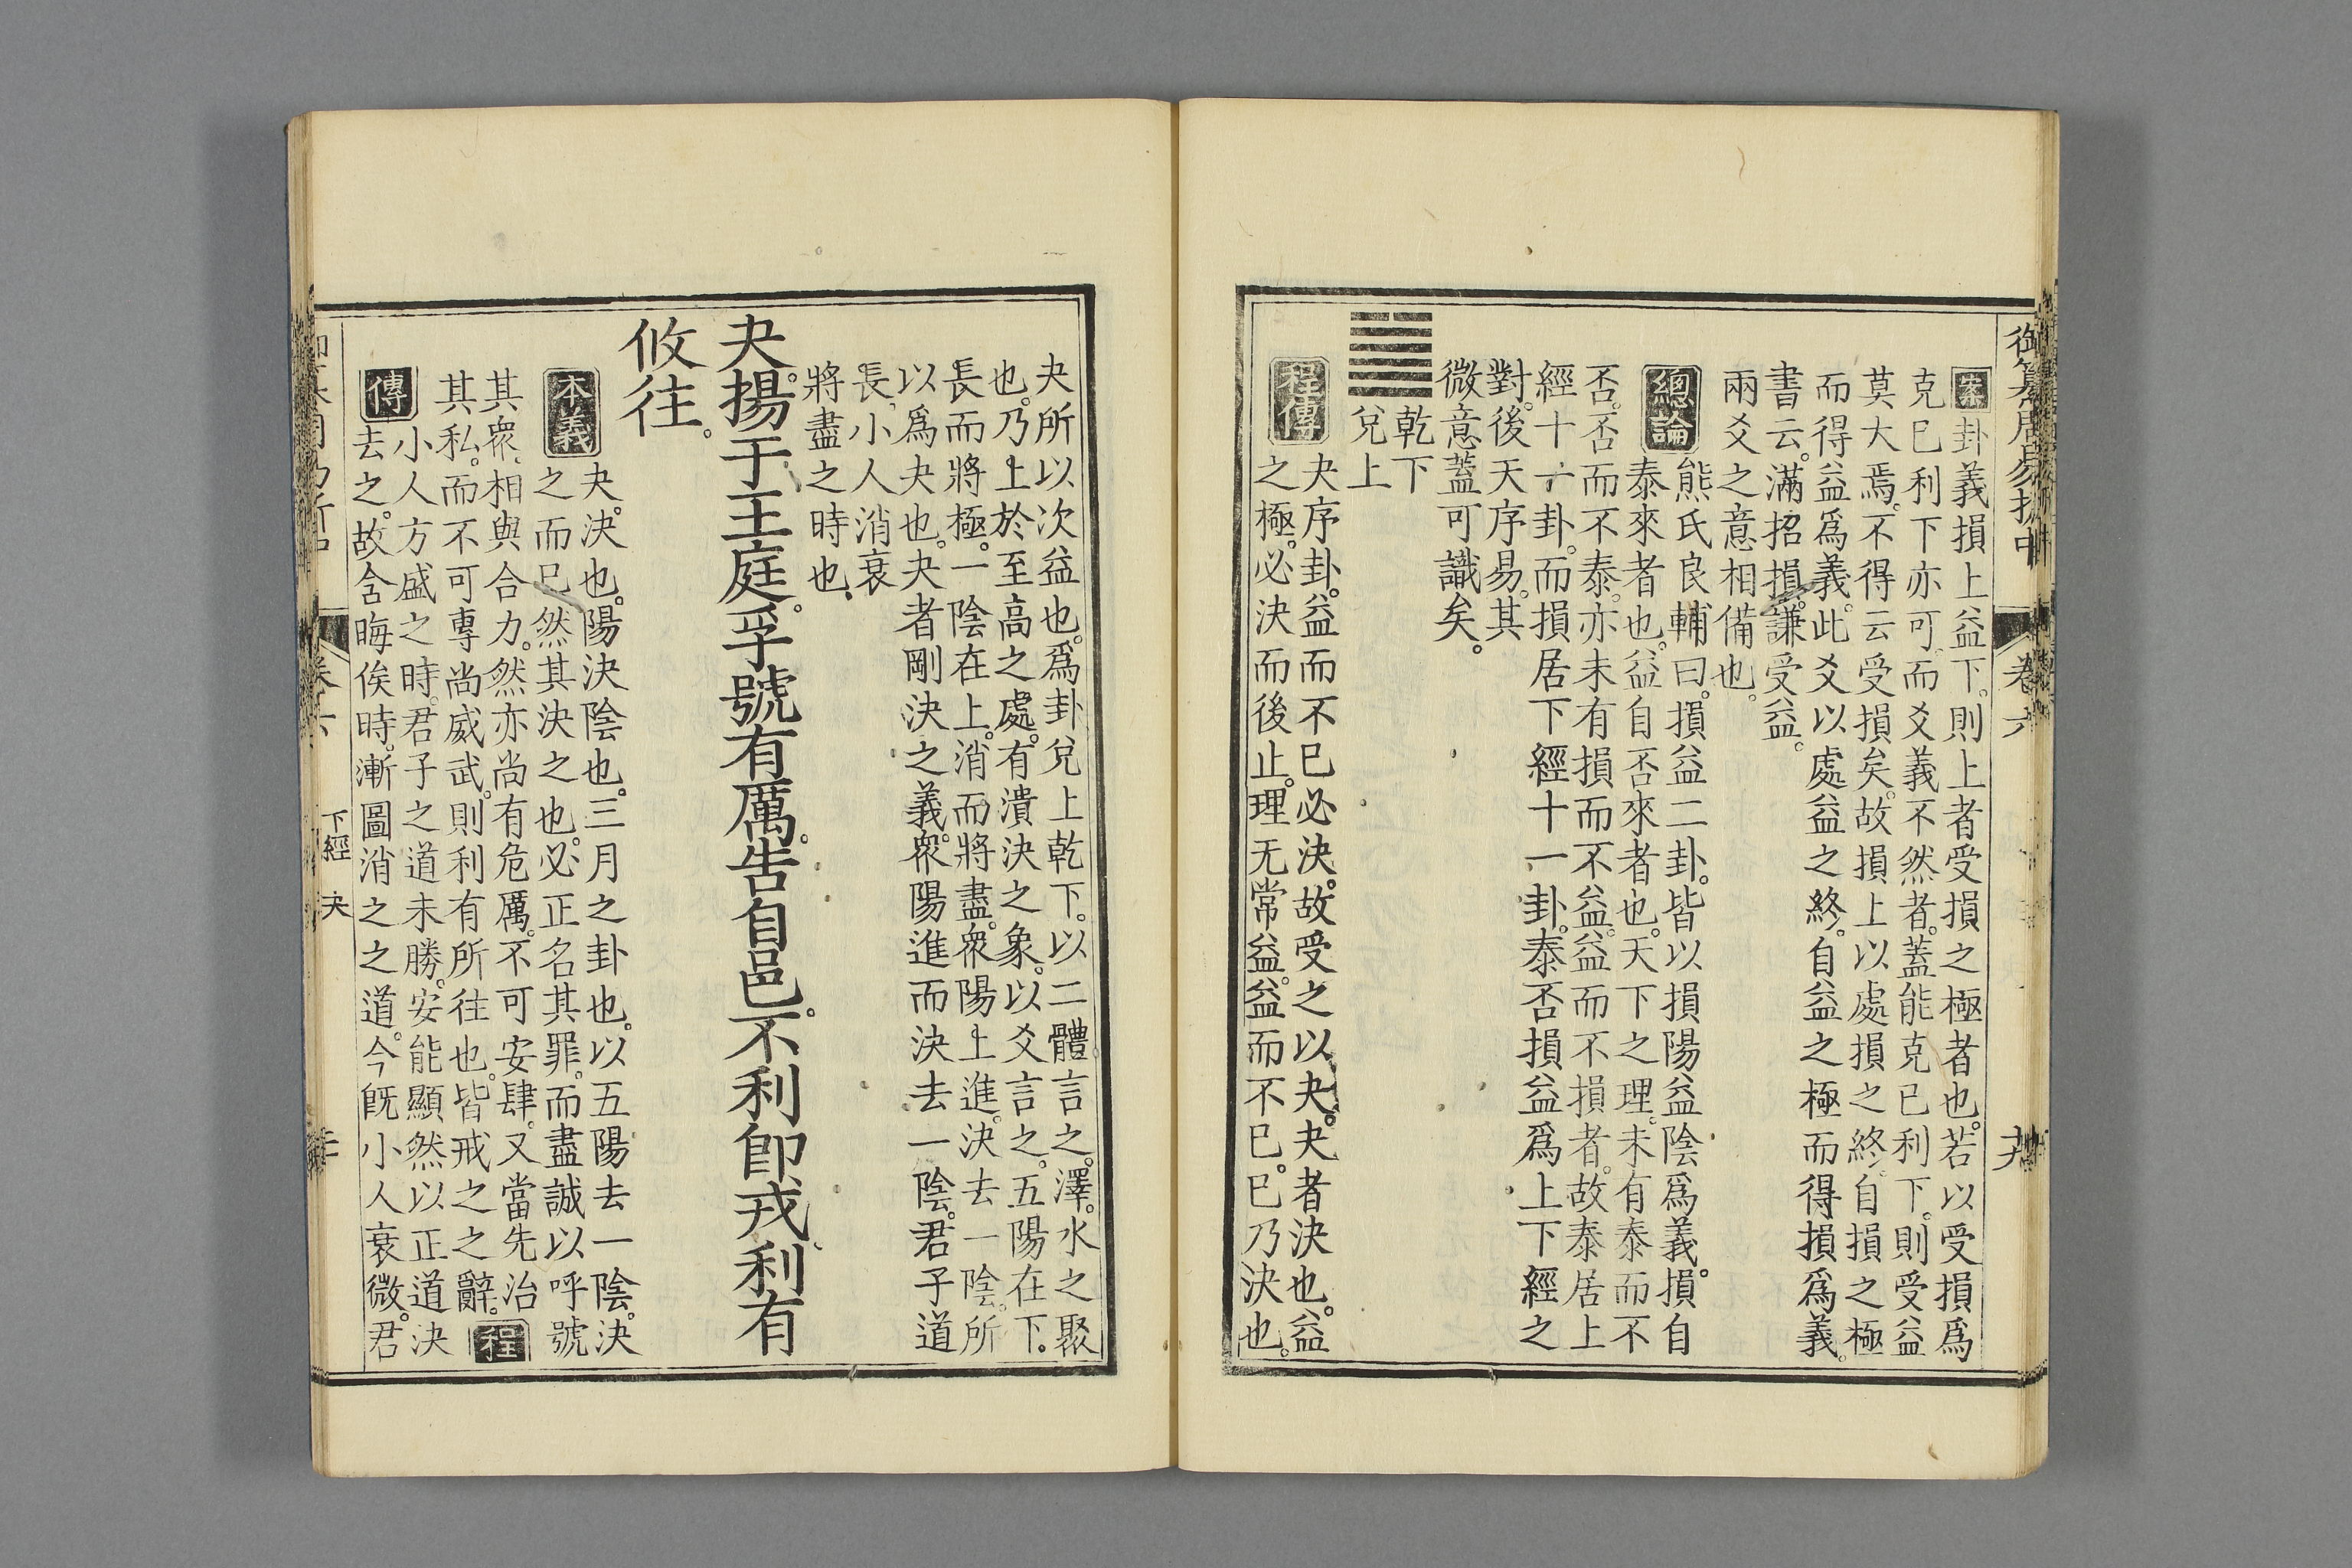 御纂周易折中
卷六
案卦義損上益下。則上者受損之極者也。若以受損爲
克巳利下亦可。而爻義不然者。蓋能克巳利下。則受益
莫大焉。不得云受損矣。故損上以處損之終。自損之極
而得益爲義。此爻以處益之終。自益之極而得損爲義。
書云。滿招損。謙受益。
兩爻之意相備也。
總論
熊氏良輔曰。損益二卦。皆以損陽益陰爲義。損自
泰來者也。益自否來者也。天下之理。未有泰而不
否。否而不泰。亦未有損而不益。益而不損者。故泰居上
經十一卦。而損居下經十一卦。泰否損益爲上下經之
對。後天序易。其
微意蓋可識矣。
乾下
兌上
程傳
夬序卦。益而不巳必決。故受之以夬。夬者決也。益
之極。必決而後止。理无常益。益而不巳。巳乃決也。
夬所以次益也。爲卦兌上乾下。以二體言之。澤。水之聚
也。乃上於至高之處。有潰決之象。以爻言之。五陽在下。
長而將極。一陰在上。消而將盡。衆陽上進。決去一陰。所
以爲夬也。夬者剛決之義。衆陽進而決去一陰。君子道
長、小人消衰
將盡之時也。
夬。揚于王庭。孚號有厲。告自邑。不利卽戎、利有
攸往。
本義
夬。決也。陽決陰也。三月之卦也。以五陽去一陰。決
之而巳。然其決之也。必正名其罪。而盡誠以呼號
其衆、相與合力。然亦尚有危厲。不可安肆。又當先治
其私。而不可專尚威武。則利有所往也。皆戒之之辭。程
傳
小人方盛之時。君子之道未勝。安能顯然以正道決
去之。故含晦俟時。漸圖消之之道。今旣小人衰微。君
下經
夬